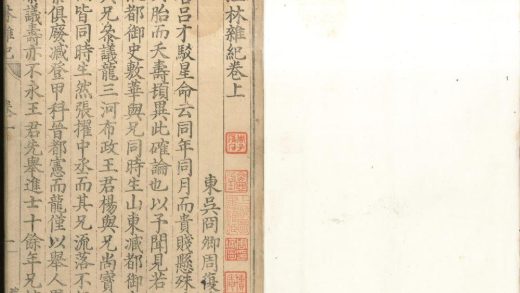 林雜紀卷上
東吳冏卿周復
呂才駁星命云同年同月而貴賤懸殊
胎而夭壽頓異此確論也以予聞見若
都御史敷華與兄同時生山東臧都御
兄叅議龍三河布政王君楊與兄尚寶
皆同時生然張擢中丞而其兄流落不
俱廢臧登甲科晉都憲而龍僅以舉人
叅議壽亦不永王君先舉進士十餘年兄
林雜紀